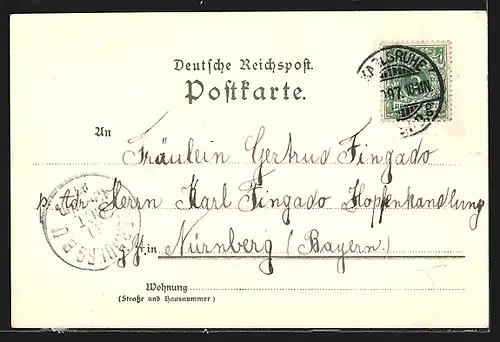 Deutsche Reichspost.
Postkarte.
KARLSRUHE
97. 10-11N
An
Fräulein Gertrud Fingado
p. Adr. Herrn Karl Fingado Hopfenhandlung
in Nürnberg (Bayern)
Wohnung
(Straße und Hausnummer)